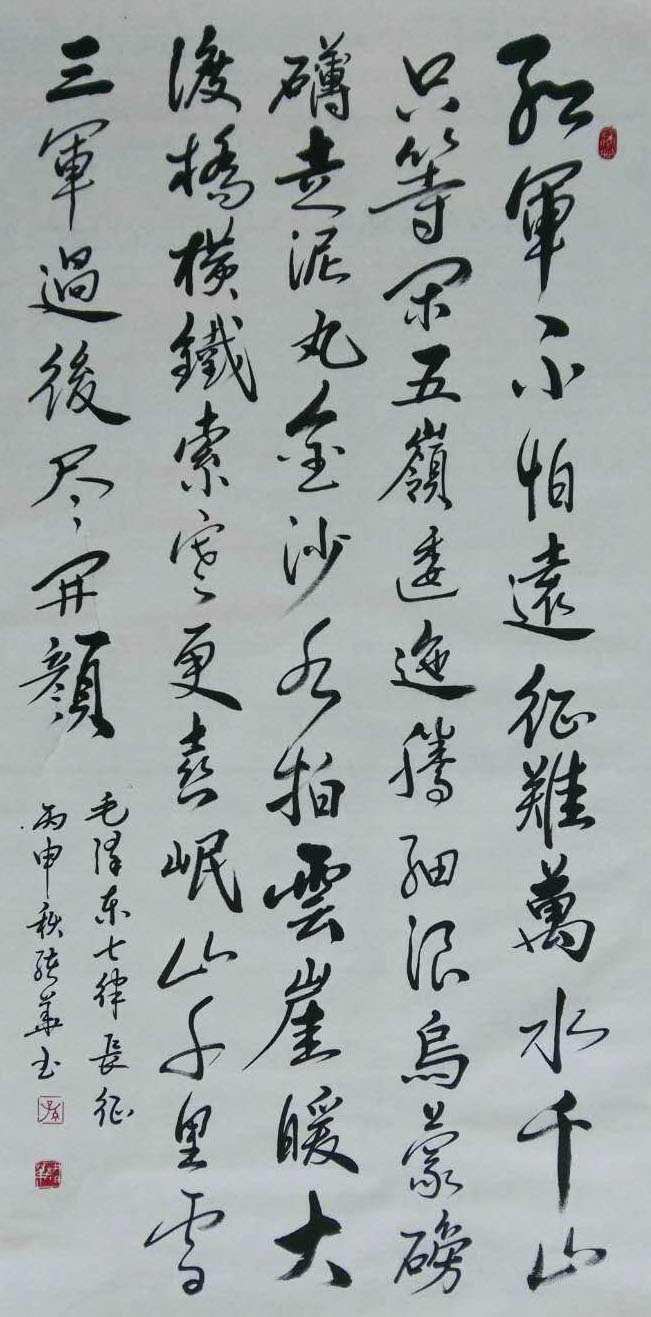 紅軍不怕遠征難萬水千山
只等闲五嶺逶迤腾細浪烏蒙磅
礴走泥丸金沙水拍雲崖暖大
渡橋横鐵索寒更喜岷山千里雪
三軍過後尽開顔
毛泽东七律長征
丙申秋 華书